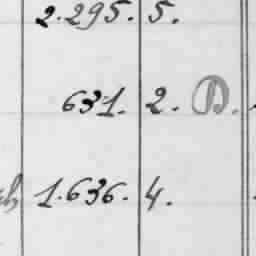 2.295. 5.
631. 2. D.
1.636. 4.